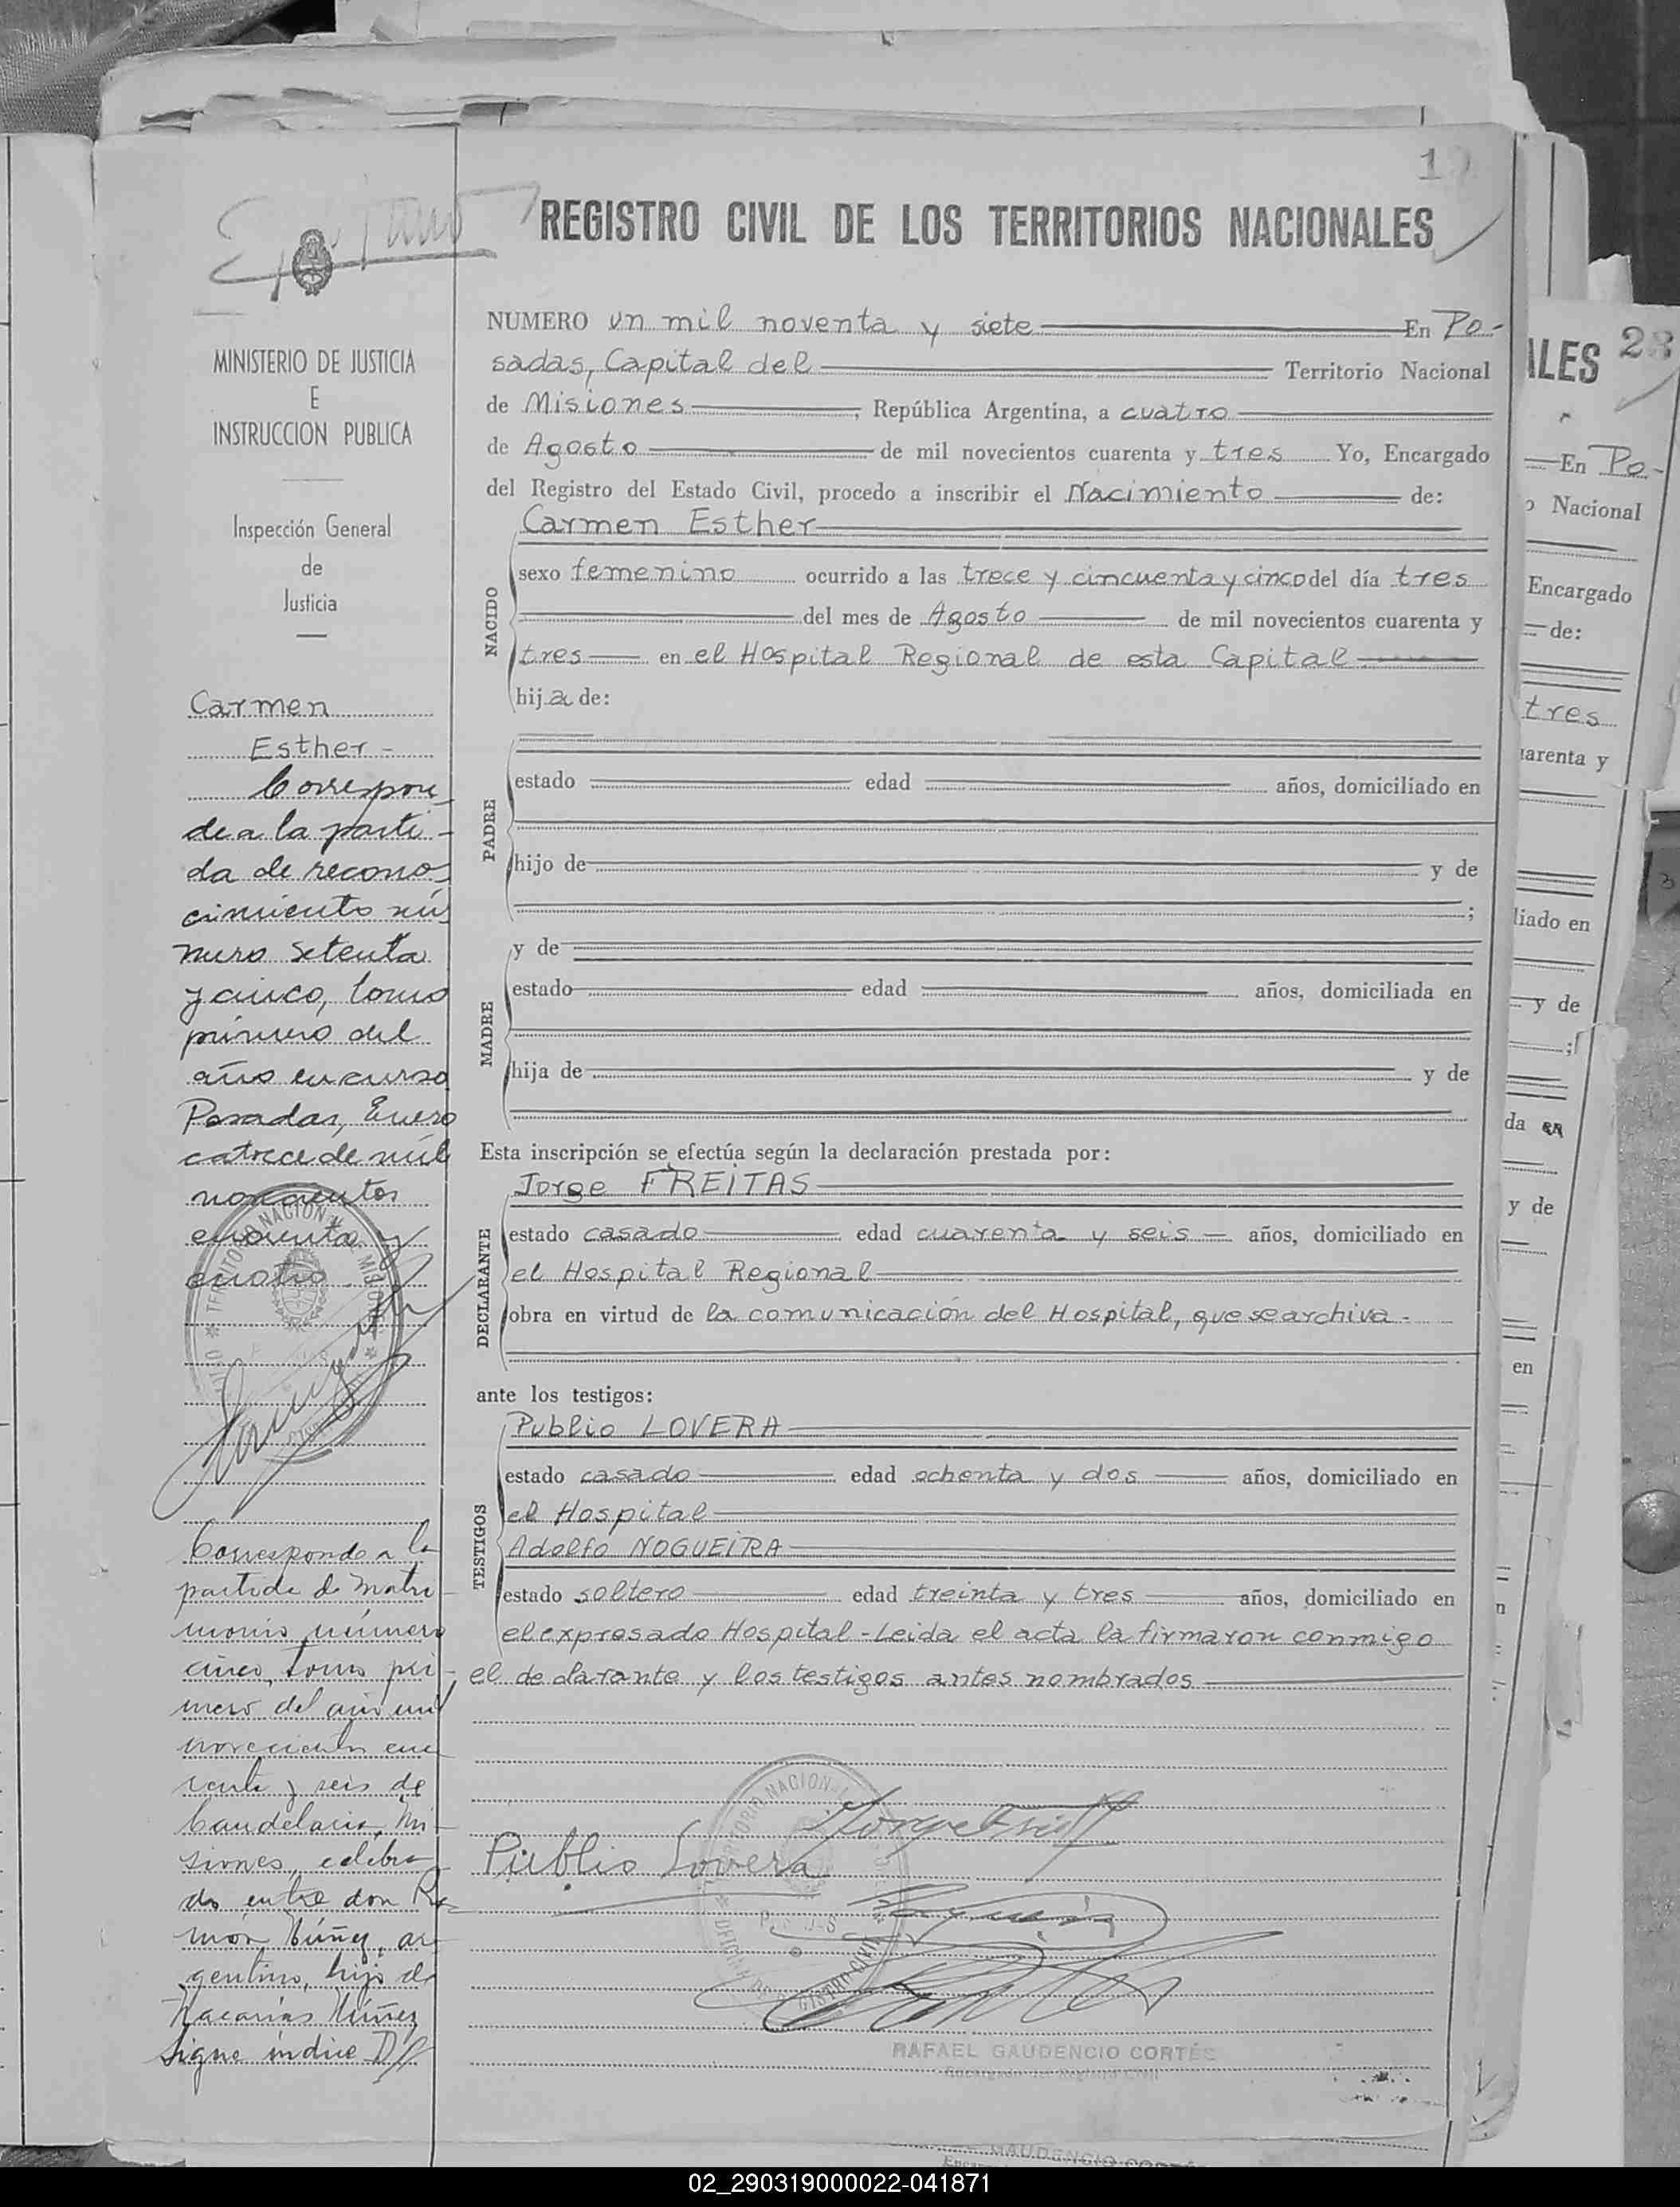 REGISTRO CIVIL DE LOS TERRITORIOS NACIONALES
MINISTERIO DE JUSTICIA
E
INSTRUCCION PUBLICA
Inspección General
de
Justicia
Carmen
Esther -
Correspon-
de a la parti-
da de recono-
cimiento nú-
mero setenta
y cinco, tomo
primero del
año en curso
Posadas, Enero
catorce de mil
novecientos
cuarenta y
cuatro.
Corresponde a la
partida de matri-
monio número
cinco, tomo pri-
mero del año mil
novecientos cua
renta y seis de
Candelaria, Mi-
siones, celebra-
do entre don Ra-
món Núñez, ar-
gentino, hijo de
Nacarias Núñez
Sigue índice D
NUMERO un mil noventa y siete En Po-
sadas, Capital del Territorio Nacional
de Misiones, República Argentina, a cuatro
de Agosto de mil novecientos cuarenta y tres Yo, Encargado
del Registro del Estado Civil, procedo a inscribir el Nacimiento de:
NACIDO
Carmen Esther
sexo femenino ocurrido a las trece y cincuenta y cinco del día tres
del mes de Agosto de mil novecientos cuarenta y
tres en el Hospital Regional de esta Capital
hija de:
PADRE
estado edad años, domiciliado en
hijo de y de
;
MADRE
y de
estado edad años, domiciliada en
hija de y de
Esta inscripción se efectúa según la declaración prestada por:
DECLARANTE
Jorge FREITAS
estado casado edad cuarenta y seis años, domiciliado en
el Hospital Regional
obra en virtud de la comunicación del Hospital, que se archiva.
ante los testigos:
TESTIGOS
Publio LOVERA
estado casado edad ochenta y dos años, domiciliado en
el Hospital
Adolfo NOGUEIRA
estado soltero edad treinta y tres años, domiciliado en
el expresado Hospital - Leida el acta la firmaron conmigo
el declarante y los testigos antes nombrados
Publio Lovera
RAFAEL GAUDENCIO CORTÉS
Encargado del Registro Civil
ALES 23
En Po-
Nacional
Encargado
de:
tres
arenta y
liado en
y de
;
da en
y de
en
n
GAUDENCIO CORTÉS
02_290319000022-041871